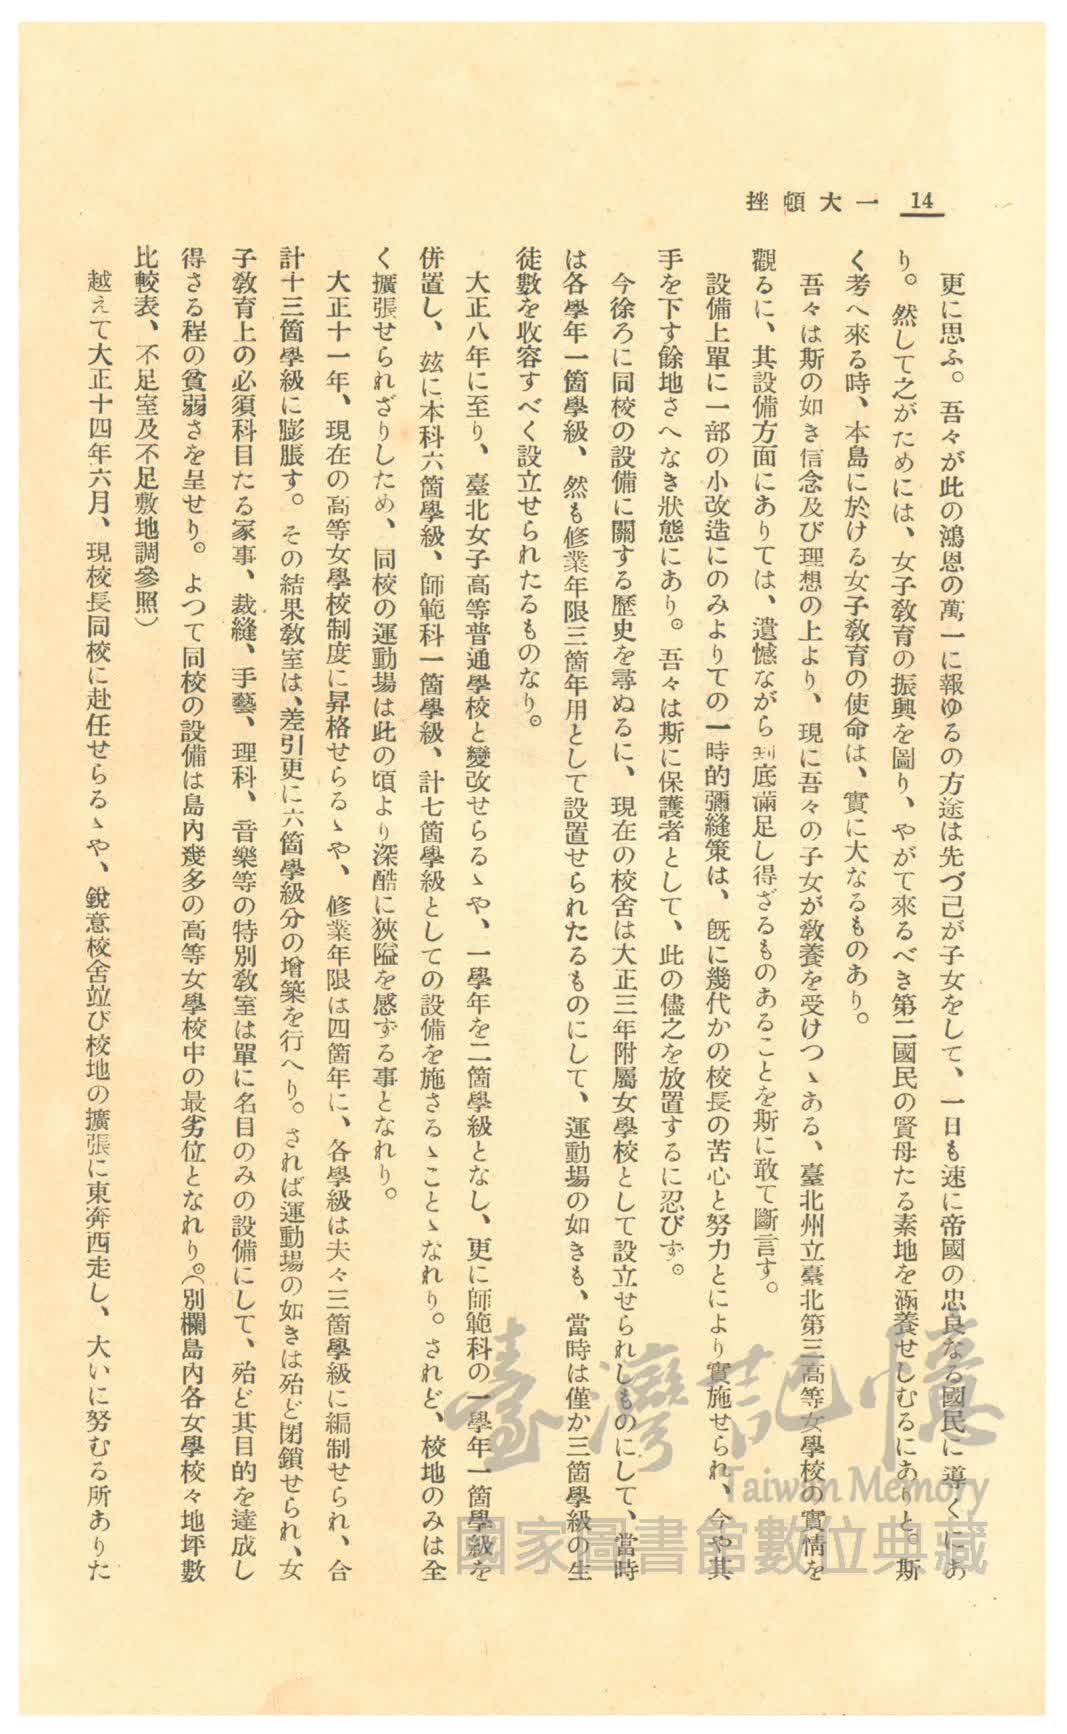 14
一大頓挫
更に思ふ。吾々が此の鴻恩の萬一に報ゆるの方途は先づ己が子女をして、一日も速に帝國の忠良なる國民に導くにあ
り。然して之がためには、女子敎育の振興を圖り、やがて來るべき第二國民の賢母たる素地を涵養せしむるにありと。斯
く考へ來る時、本島に於ける女子敎育の使命は、實に大なるものあり。
吾々は斯の如き信念及び理想の上より、現に吾々の子女が敎養を受けつゝある、臺北州立臺北第三高等女學校の實情を
觀るに、其設備方面にありては、遺憾ながら到底滿足し得ざるものあることを斯に敢て斷言す。
設備上單に一部の小改造にのみよりての一時的彌縫策は、旣に幾代かの校長の苦心と努力とにより實施せられ、今や其
手を下す餘地さへなき狀態にあり。吾々は斯に保護者として、此の儘之を放置するに忍びず。
今徐ろに同校の設備に關する歷史を尋ぬるに、現在の校舍は大正三年附屬女學校として設立せられしものにして、當時
は各學年一箇學級、然も修業年限三箇年用として設置せられたるものにして、運動場の如きも、當時は僅か三箇學級の生
徒數を收容すべく設立せられたるものなり。
大正八年に至り、臺北女子高等普通學校と變改せらるゝや、一學年を二箇學級となし、更に師範科の一學年一箇學級を
併置し、玆に本科六箇學級、師範科一箇學級、計七箇學級としての設備を施さるゝことゝなれり。されど、校地のみは全
く擴張せられざりしため、同校の運動場は此の頃より深酷に狹隘を感ずる事となれり。
大正十一年、現在の高等女學校制度に昇格せらるゝや、修業年限は四箇年に、各學級は夫々三箇學級に編制せられ、合
計十三箇學級に膨脹す。その結果敎室は、差引更に六箇學級分の增築を行へり。されば運動場の如きは殆ど閉鎖せられ、女
子敎育上の必須科目たる家事、裁縫、手藝、理科、音樂等の特別敎室は單に名目のみの設備にして、殆ど其目的を達成し
得さる程の貧弱さを呈せり。よつて同校の設備は島內幾多の高等女學校中の最劣位となれり。（別欄島內各女學校々地坪數
比較表、不足室及不足敷地調參照）
越えて大正十四年六月、現校長同校に赴任せらるゝや、銳意校舍竝び校地の擴張に東奔西走し、大いに努むる所ありた
臺灣記憶
Taiwan Memory
國家圖書館數位典藏